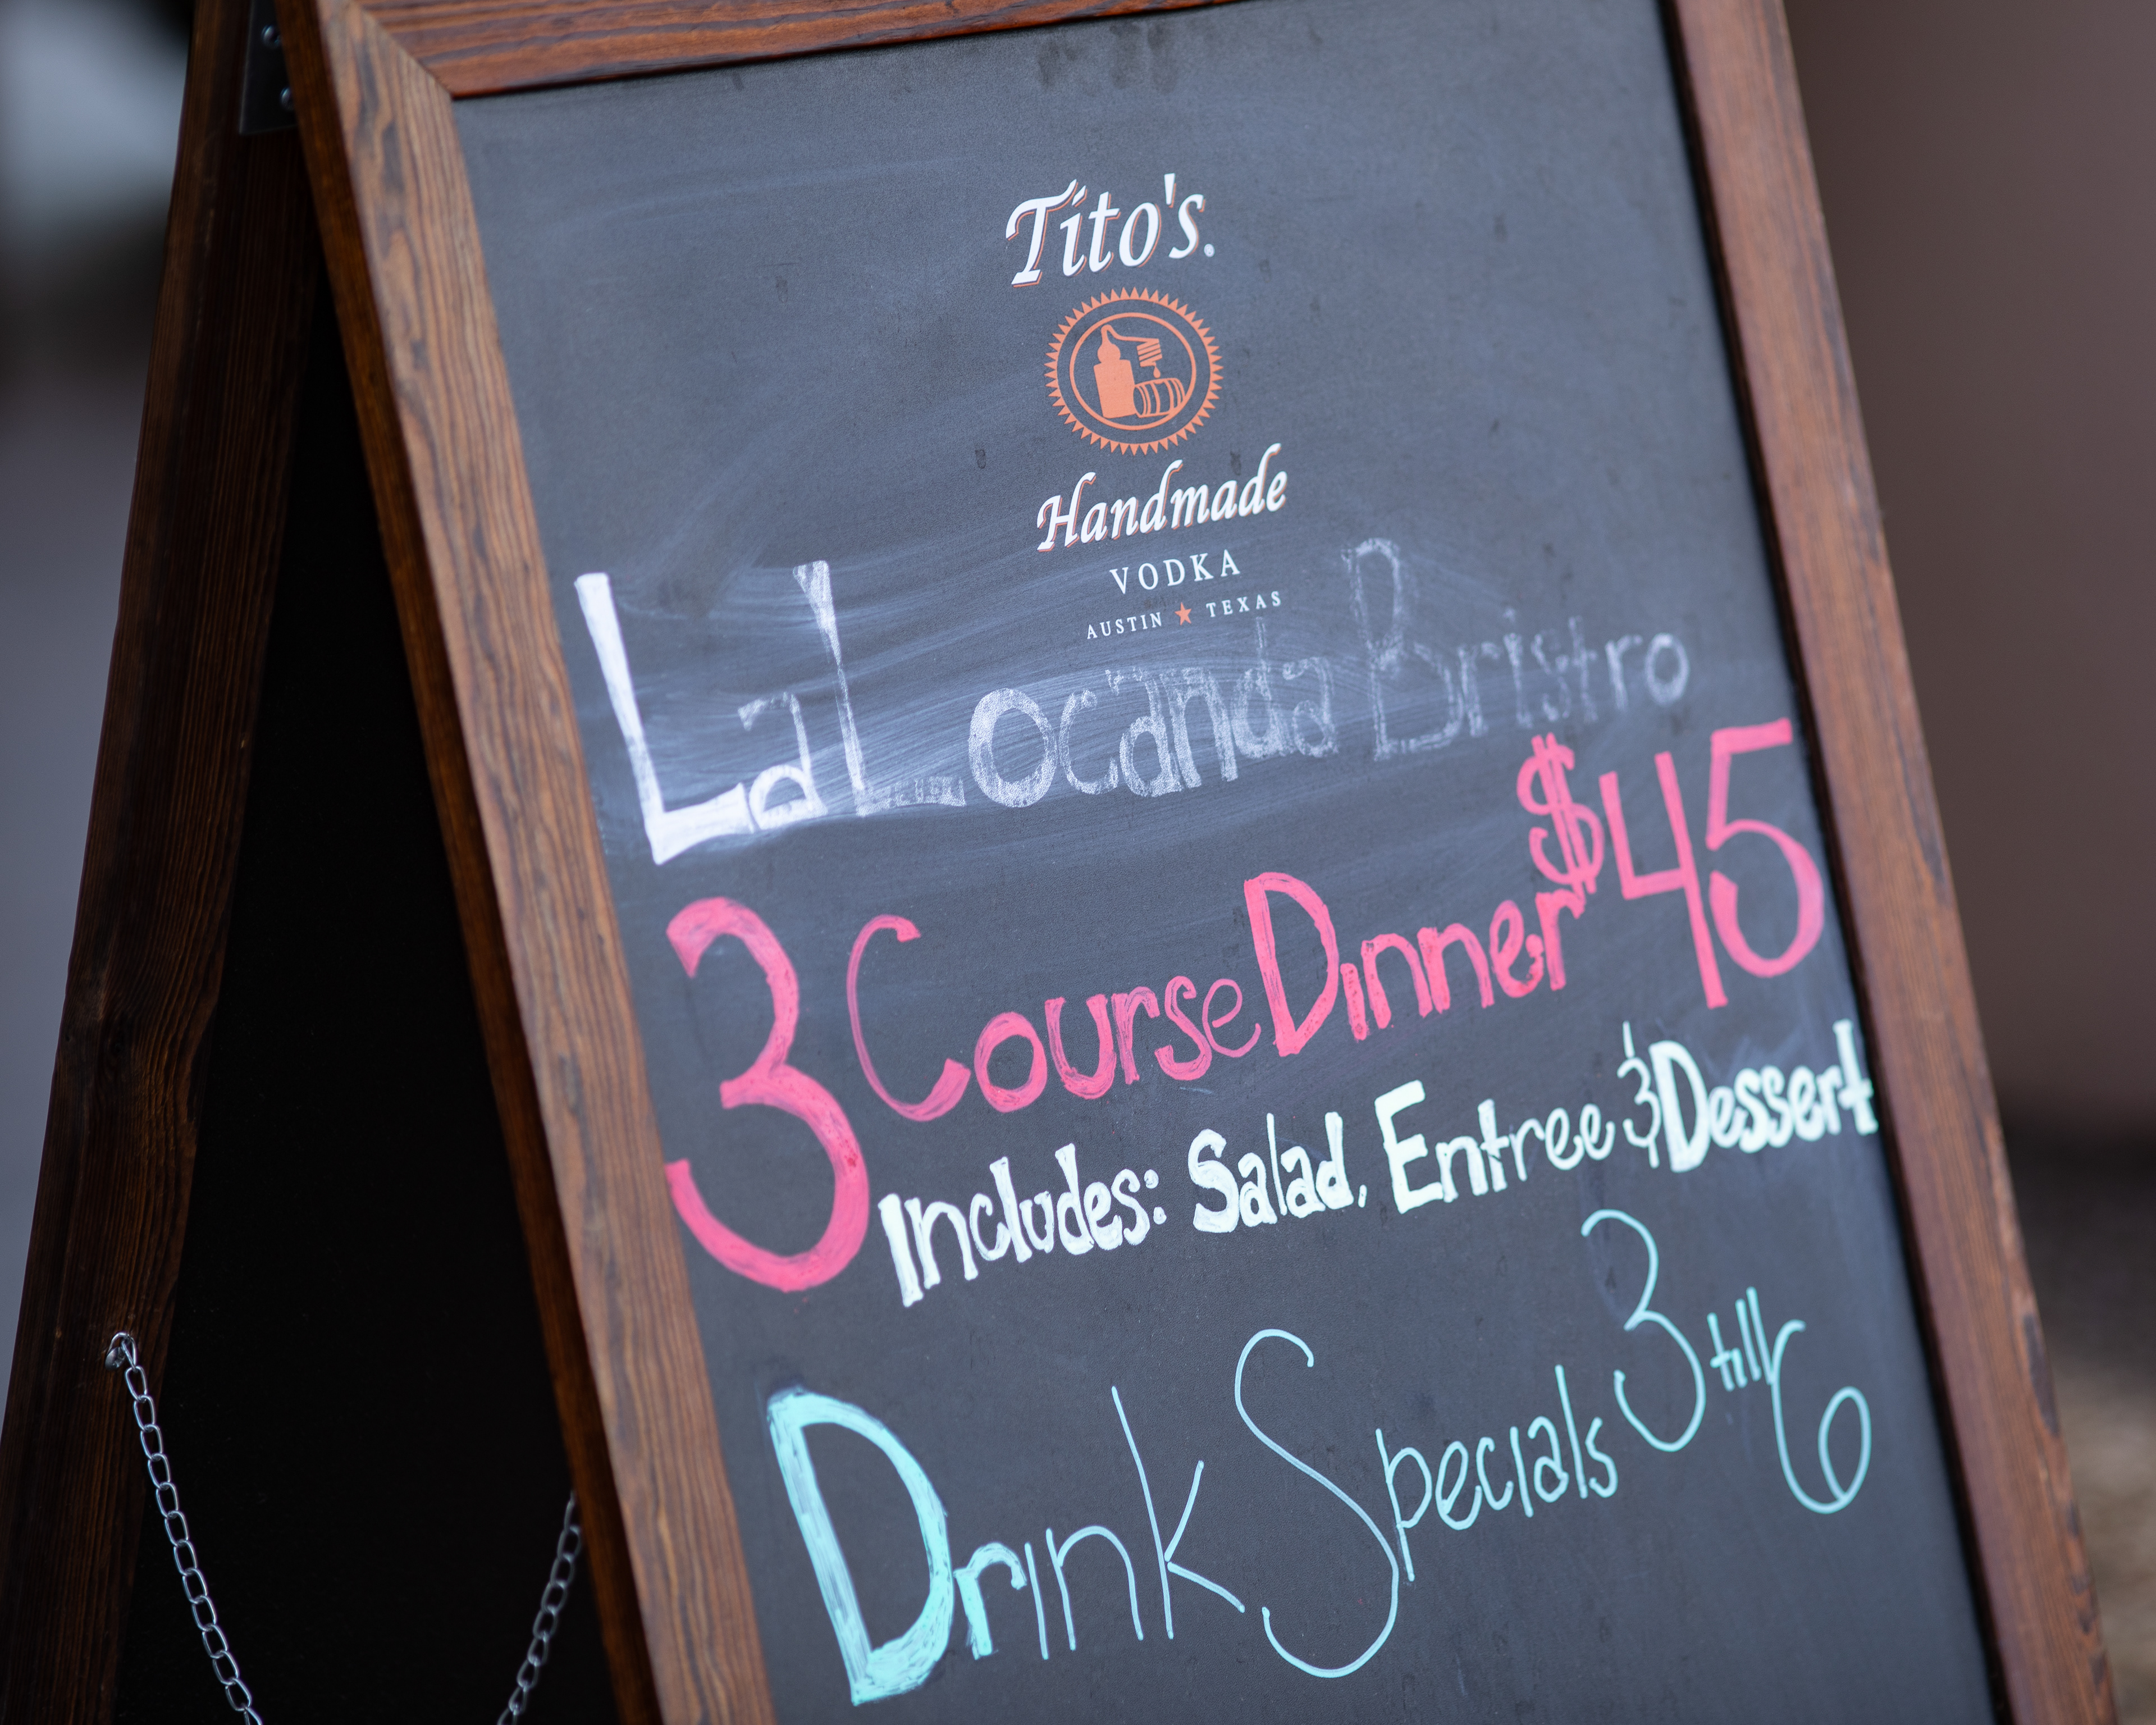 Tito's.
Handmade
VODKA
AUSTIN ★ TEXAS
La Locanda Bristro
3 Course Dinner $45
Includes: Salad, Entree & Dessert
Drink Specials 3 till 6